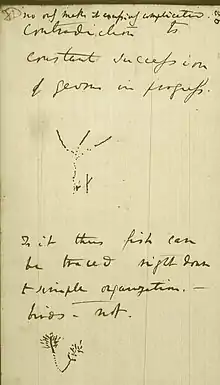 no only makes it excessively complicated.
Contradiction to
constant succession
of germs in progress.
Is it thus fish can
be traced right down
to simple organization. —
birds — not.